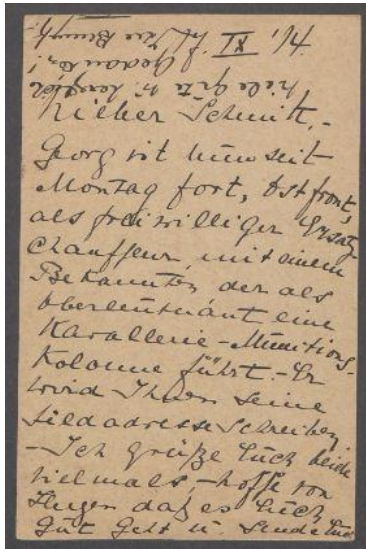 f. IX '14.
Lieber Schmitt, -
Georg ist nun seit
Montag fort, Ostfront,
als freiwilliger Ersatz-
Chauffeur, mit einem
Bekannten der als
Oberleutnant eine
Kavallerie-Munitions-
Kolonne führt. - Er
wird Ihnen seine
Feldadresse schreiben
- Ich grüße Euch beide
vielmals, - hoffe von
Herzen daß es Euch
gut geht u. sende Euch
viele gute u. herzliche
Gedanken!